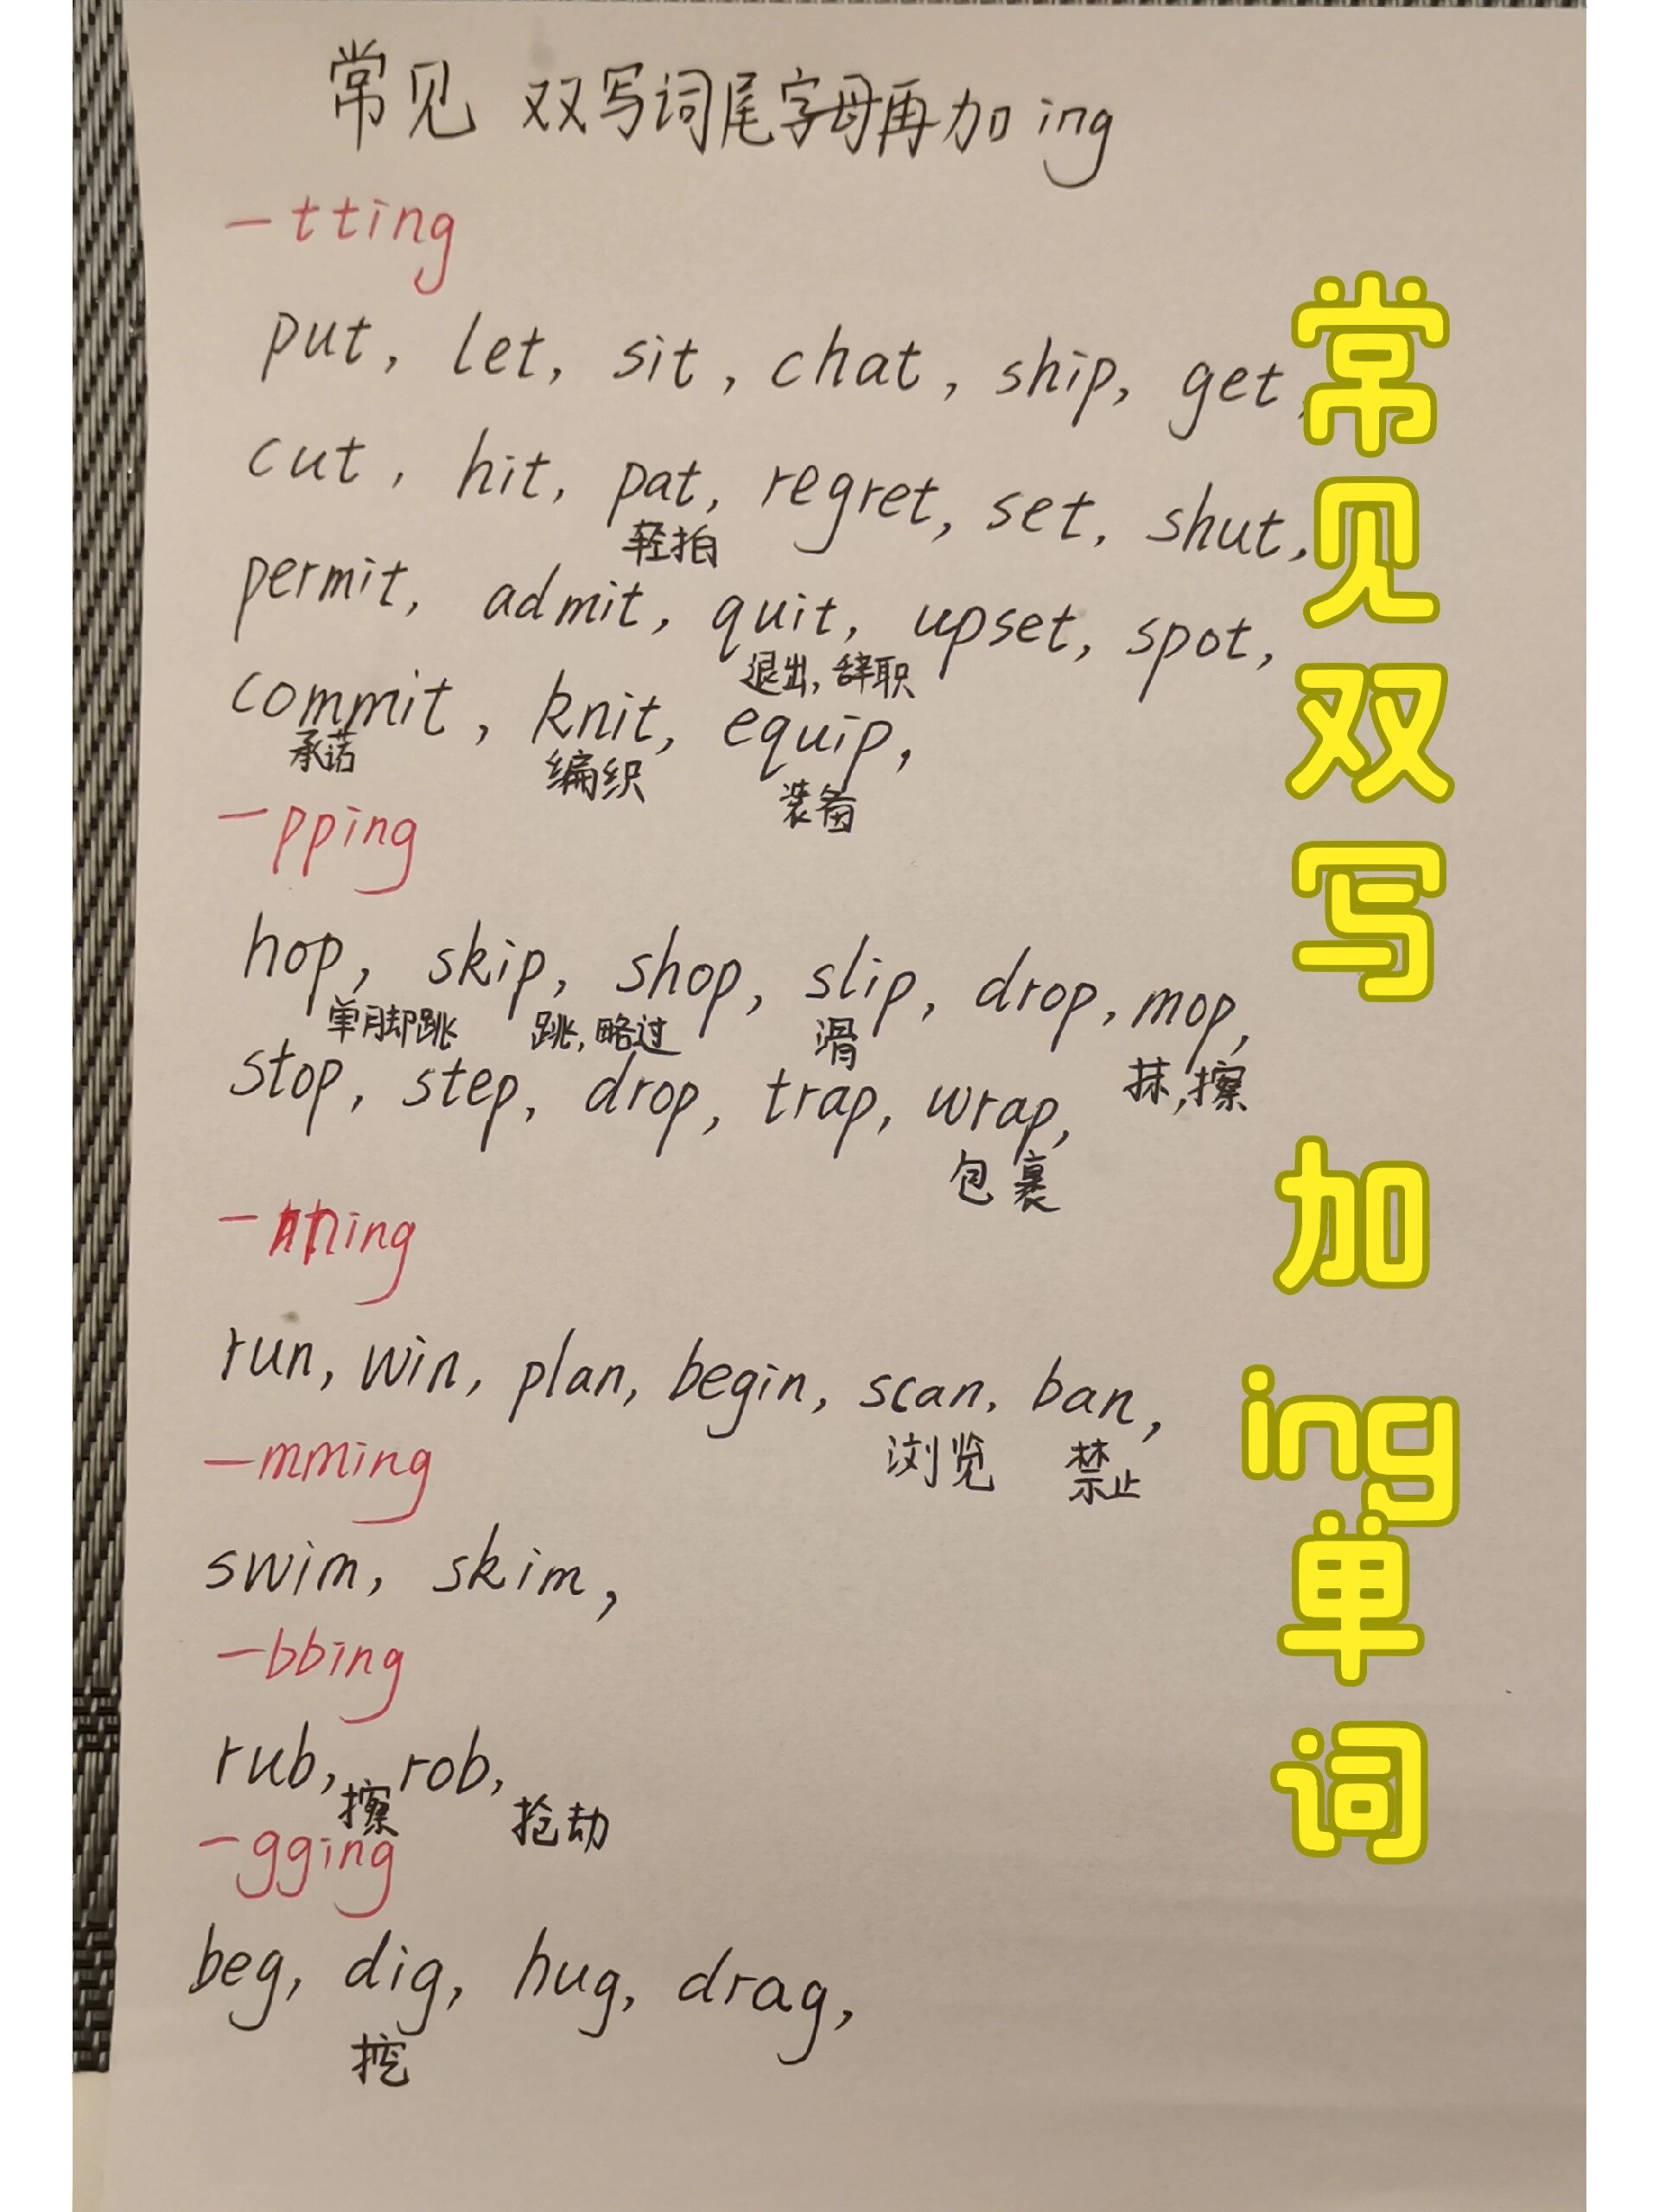 常见 双写词尾字母再加ing
-tting
put, let, sit, chat, ship, get,
cut, hit, pat, regret, set, shut,
轻拍
permit, admit, quit, upset, spot,
退出,辞职
commit, knit, equip,
承诺 编织 装备
-pping
hop, skip, shop, slip, drop, mop,
单脚跳 跳,略过 滑 抹,擦
stop, step, drop, trap, wrap,
包裹
-nning
run, win, plan, begin, scan, ban,
浏览 禁止
-mming
swim, skim,
-bbing
rub, rob,
擦 抢劫
-gging
beg, dig, hug, drag,
挖
常见双写 加ing单词